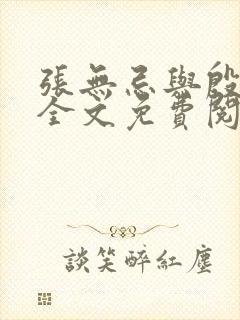 張無忌與殷
全文免費閱
談笑醉紅塵